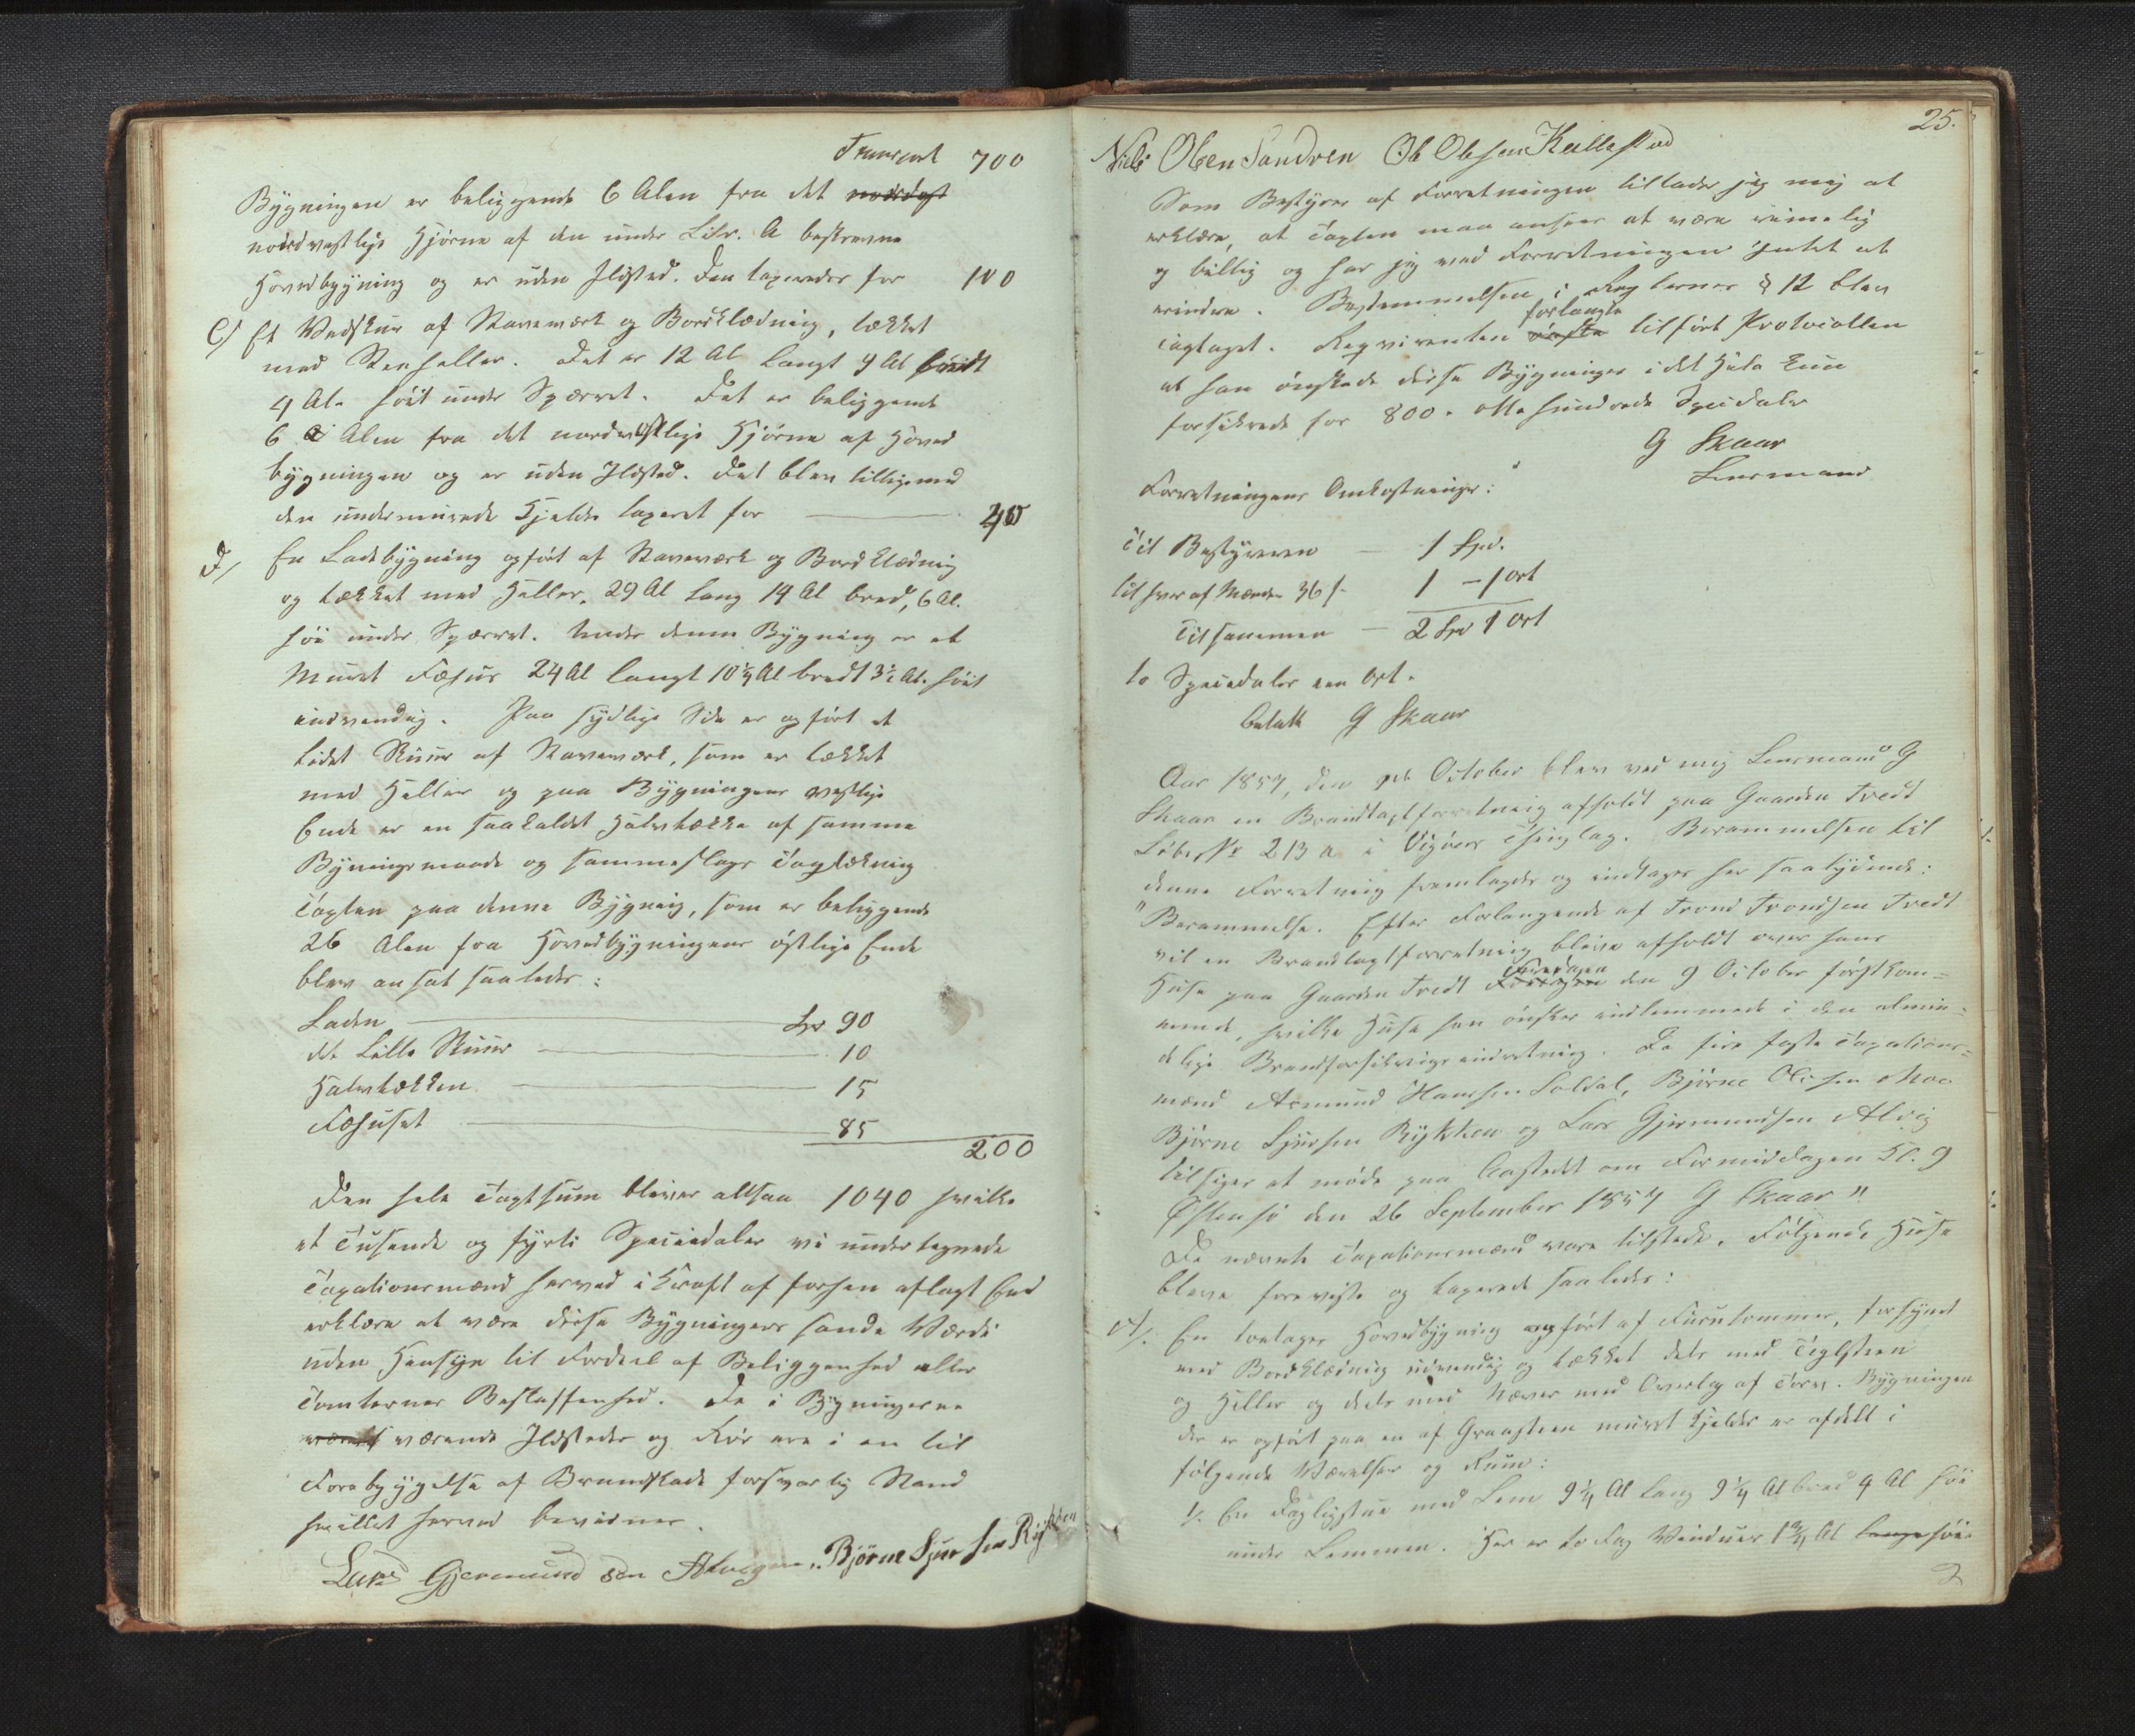 Transport 700
Bygningen er beliggende 6 Alen fra det nordost
nordvestlige Hjørne af den under Litr. A beskrevne
Hovedbygning og er uden Ildsted. Den taxeredes for 100
C/ Et Vedskur af Stavværk og Bordklædning, tækket
med Steenheller. Det er 12 Al langt 4 Al bredt
4 Al. høit under Sparret. Det er beliggende
6 Alen fra det nordvestlige Hjørne af Hoved
bygningen og er uden Ildsted. Det blev tilligemed
den undermurede Kjelder taxeret for 40
D/ En Ladebygning opført af Stavværk og Bordklædning
og tækket med Heller, 29 Al lang 14 Al bred, 6 Al.
høi under Sparret. Under denne Bygning er et
Muret Fæhus 24 Al langt 10 1/4 Al bredt 3 1/2 Al. høit
indvendig. Paa sydlige Side er opført et
lidet Skuur af Stavværk, som er tækket
med Heller og paa Bygningens vestlige
Ende er en saakaldet Halvtække af samme
Bygningsmaade og sammeslags Tagtækning
Taxten paa denne Bygning, som er beliggende
26 Alen fra Hovedbygningens østlige Ende
blev ansat saaledes:
Laden Spd 90
det lille Skuur 10
Halvtækken 15
Fæhuset 85
200
Den hele Taxtsum bliver altsaa 1040 hvilke
et Tusende og fyrti Speciedaler vi undertegnede
Taxationsmænd herved i Kraft af forhen aflagt Eed
erklære at være disse Bygningers sande Værdi
uden Hensyn til Fordeel af Beliggenhed eller
Tomternes Beskaffenhed. De i Bygningerne
værende Ildsteder og Rør ere i en til
Forebyggelse af Brandskade forsvarlig Stand
hvilket herved bevidnes.
Lars Gjermundsen Alvigen Bjørne Sjursen Rykken
25.
Niels Olsen Sandven Ole Olsen Kallestad
Som Bestyrer af Forretningen tillader jeg mig at
erklære, at Taxten maa ansees at være rimelig
og billig og har jeg ved Forretningen Intet at
erindre. Bestemmelsen i Reglernes § 12 blev
iagtaget. Reqvirenten ønske forlangte tilført Protocollen
at han ønskede disse Bygninger i det Hele kun
forsikrede for 800. otte hundrede Speciedaler
G Skaar
Lensmand
Forretningens Omkostninger:
Til Bestyreren 1 Spd.
til hver af Mænden 36 s. 1 - 1 ort
Tilsammen 2 Spd 1 Ort
to Speciedaler een Ort.
betalt G Skaar
Aar 1857, den 9de October blev ved mig Lensmand G
Skaar en Brandtaxtforretning afholdt paa Gaarden Tvedt
Løbe No 213 a i Vigøers Thinglag. Berammelsen til
denne Forretning fremlagdes og indtages her saalydende:
"Berammelse. Efter Forlangende af Trond Trondsen Tvedt
vil en Brandtaxtforretning blive afholdt over hans
Huse paa Gaarden Tvedt Fredagen den 9 October førstkom=
mende, hvilke Huse han ønsker indlemmede i den almin=
delige Brandforsikringsindretning. De fire faste Taxations=
mænd Asmund Hansen Soldal, Bjørne Olsen Moe
Bjørne Sjursen Rykken og Lars Gjermundsen Alvig
tilsiges at møde paa Aastedet om Formiddagen Kl. 9
Østensø den 26 September 1857 G Skaar"
De nævnte Taxationsmænd vare tilstede. Følgende Huse
bleve foreviste og taxerede saaledes:
A/. En toetages Hovedbygning opført af Furutømmer, forsynet
med Bordklædning udvendig og tækket dels med Teglsteen
og Heller og dels med Næver med Overlag af Torv. Bygningen
der er opført paa en af Graasteen muret Kjelder er afdelt i
følgende Værelser og Rum:
1/. En Dagligstue med Lem 9 1/4 Al lang 9 1/4 Al bred 4 Al høi
under Lemmen. Her er to Fag Vinduer 1 3/4 Al lange høie
2